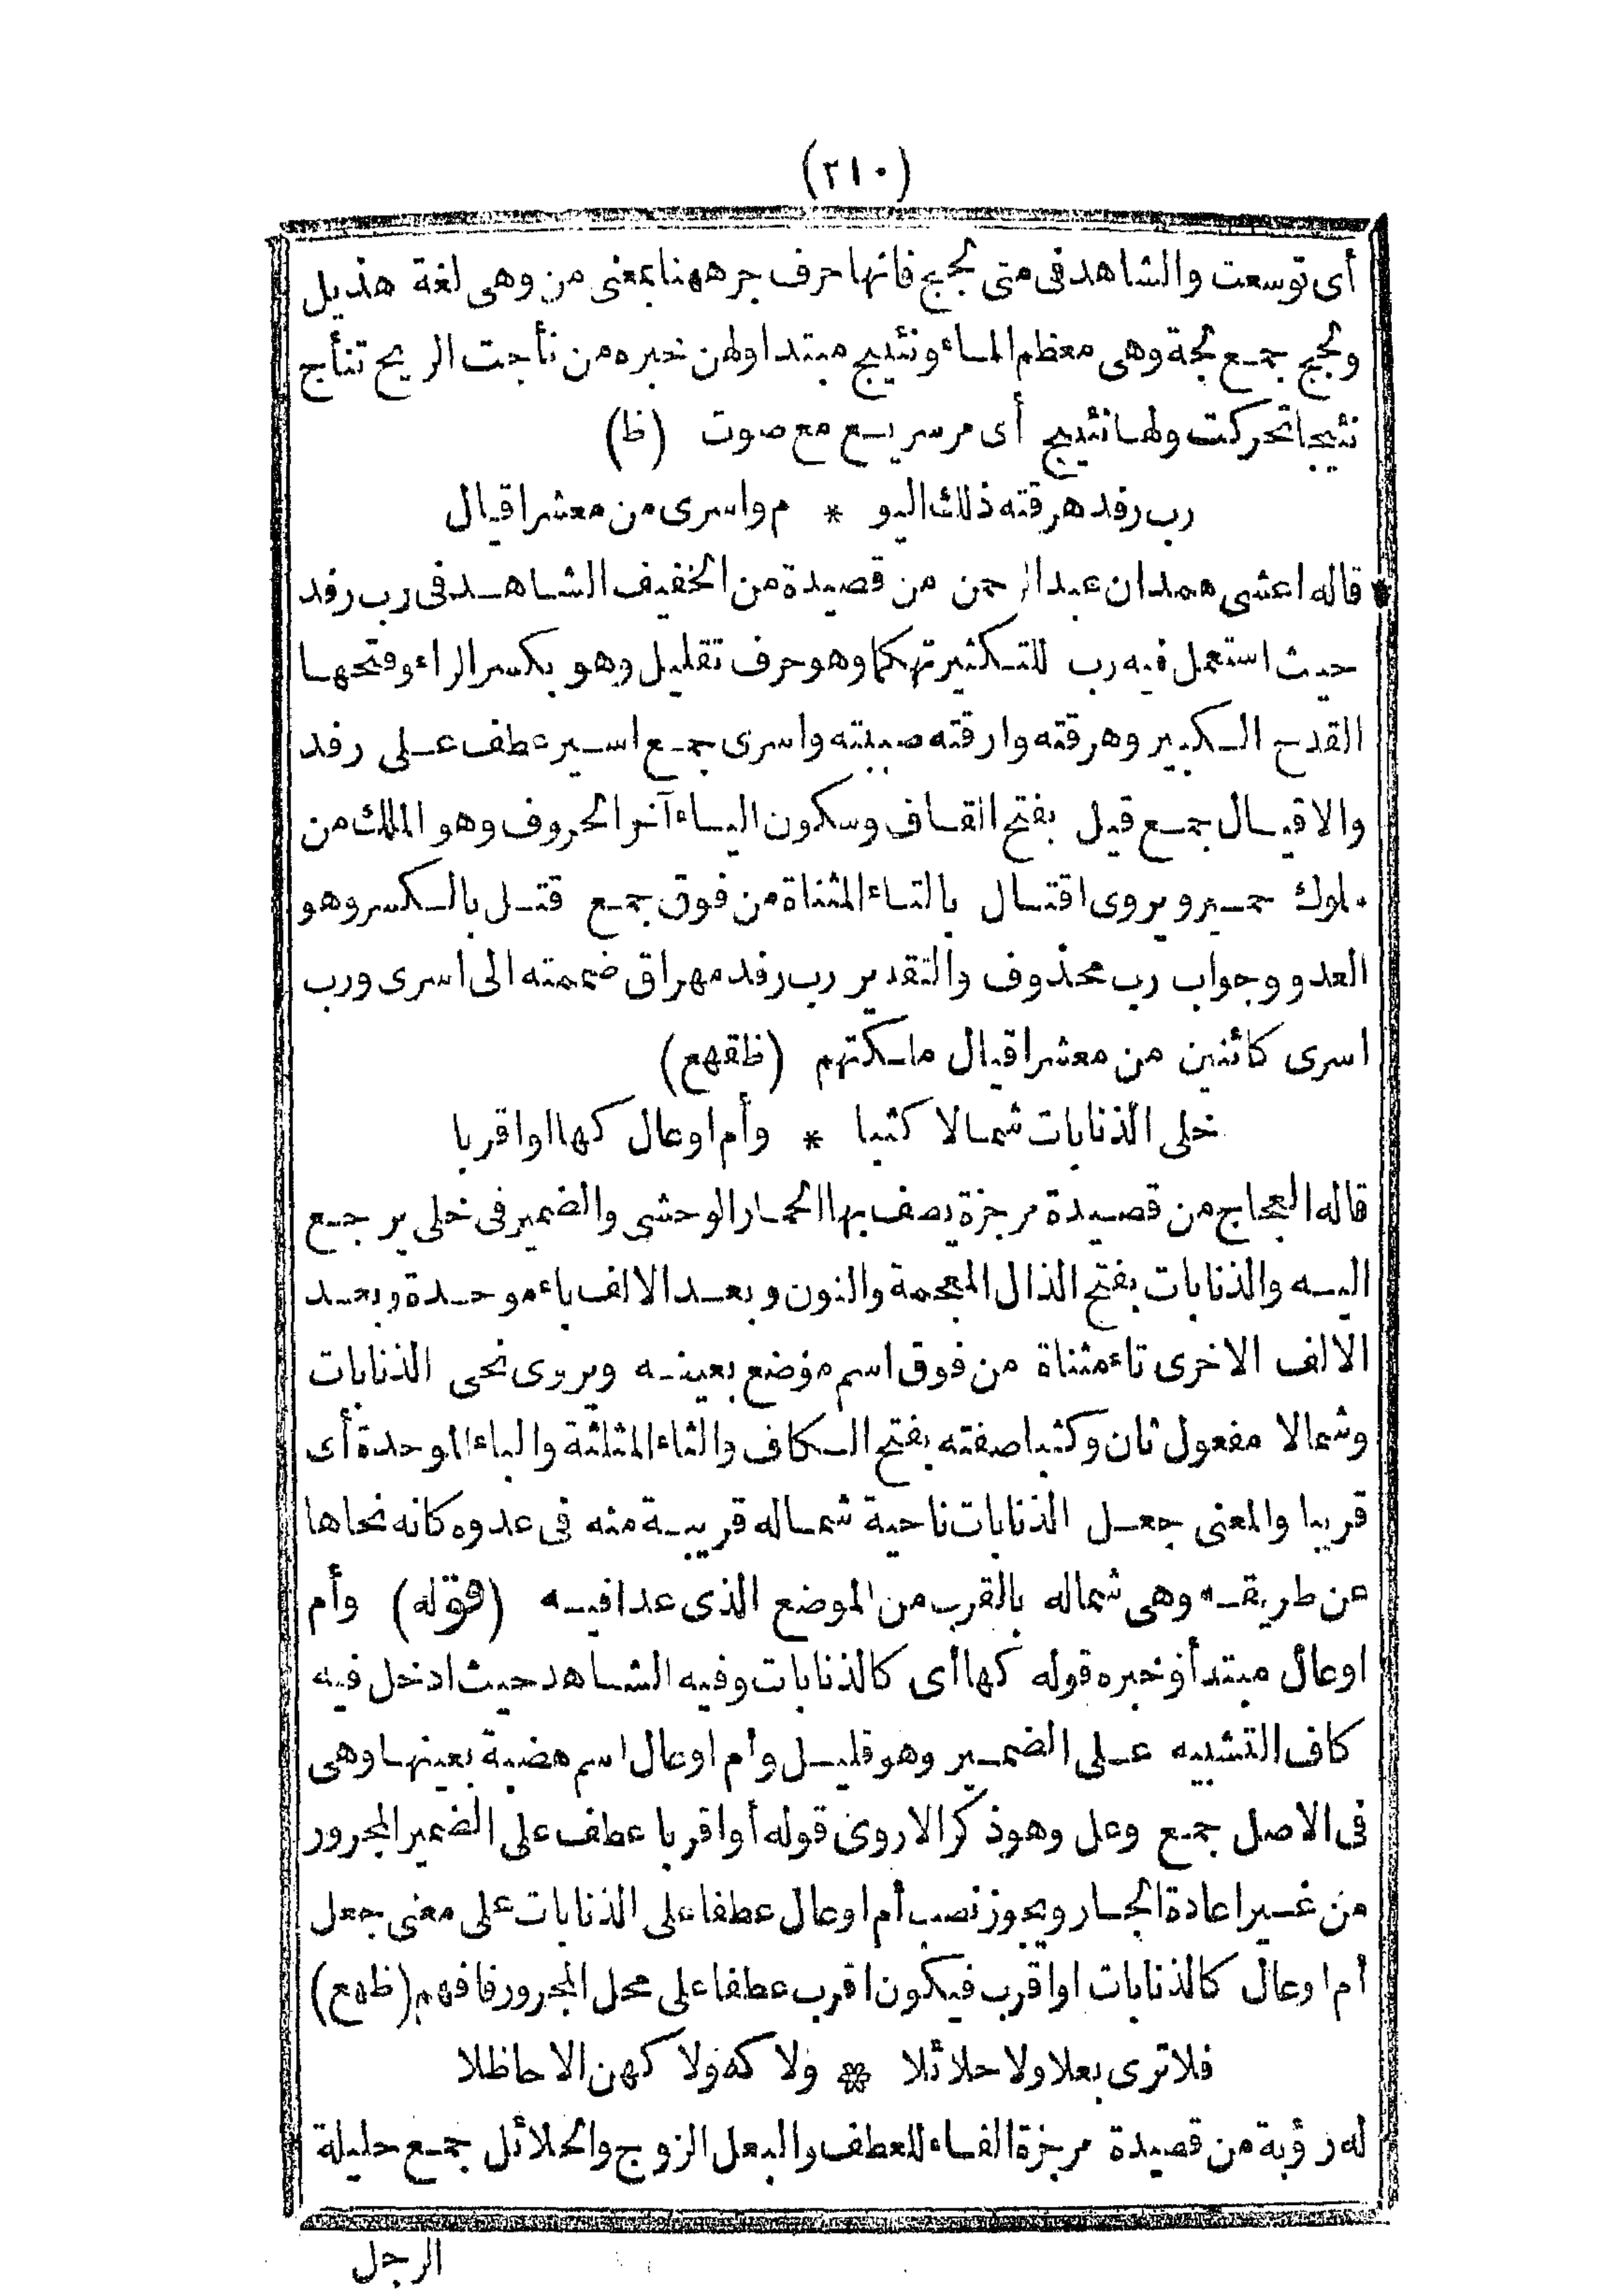 (٢١٠)
أى توسعت والشاهد فى متى لجج فانها حرف جر ههنا بمعنى من وهى لغة هذيل
ولجج جمع لجة وهى معظم الماء ونئيج مبتدا ولهن خبره من نأجت الريح تنأج
نئيجا تحركت ولها نئيج أى مر سريع مع صوت (ظ)
رب رفد هرقته ذلك اليو * م واسرى من معشر اقيال
* قاله اعشى همدان عبد الرحمن من قصيدة من الخفيف الشاهد فى رب رفد
حيث استعمل فيه رب للتكثير تهكما وهو حرف تقليل وهو بكسر الراء وفتحها
القدح الكبير وهرقته وارقته صببته واسرى جمع اسير عطف على رفد
والاقيال جمع قيل بفتح القاف وسكون الياء آخر الحروف وهو الملك من
ملوك حمير ويروى اقتال بالتاء المثناة من فوق جمع قتل بالكسر وهو
العدو وجواب رب محذوف والتقدير رب رفد مهراق ضممته الى اسرى ورب
اسرى كائنين من معشر اقيال ملكتهم (ظقهع)
خلى الذنابات شمالا كثبا * وأم اوعال كها او اقربا
قاله العجاج من قصيدة مرجزة يصف بها الحمار الوحشى والضمير فى خلى يرجع
اليه والذنابات بفتح الذال المعجمة والنون وبعد الالف باء موحدة وبعد
الالف الاخرى تاء مثناة من فوق اسم موضع بعينه ويروى نحى الذنابات
وشمالا مفعول ثان وكثبا صفته بفتح الكاف والثاء المثلثة والباء الموحدة أى
قريبا والمعنى جعل الذنابات ناحية شماله قريبة منه فى عدوه كانه نحاها
عن طريقه وهى شماله بالقرب من الموضع الذى عدا فيه (قوله) وأم
اوعال مبتدأ وخبره قوله كها أى كالذنابات وفيه الشاهد حيث ادخل فيه
كاف التشبيه على الضمير وهو قليل وأم اوعال اسم هضبة بعينها وهى
فى الاصل جمع وعل وهو ذكر الاروى قوله أو اقربا عطف على الضمير المجرور
من غير اعادة الجار ويجوز نصب أم اوعال عطفا على الذنابات على معنى جعل
أم اوعال كالذنابات او اقرب فيكون اقرب عطفا على محل المجرور فافهم (ظهع)
فلا ترى بعلا ولا حلائلا * ولا كه ولا كهن الا حاظلا
له رؤبة من قصيدة مرجزة الفاء للعطف والبعل الزوج والحلائل جمع حليلة
الرجل